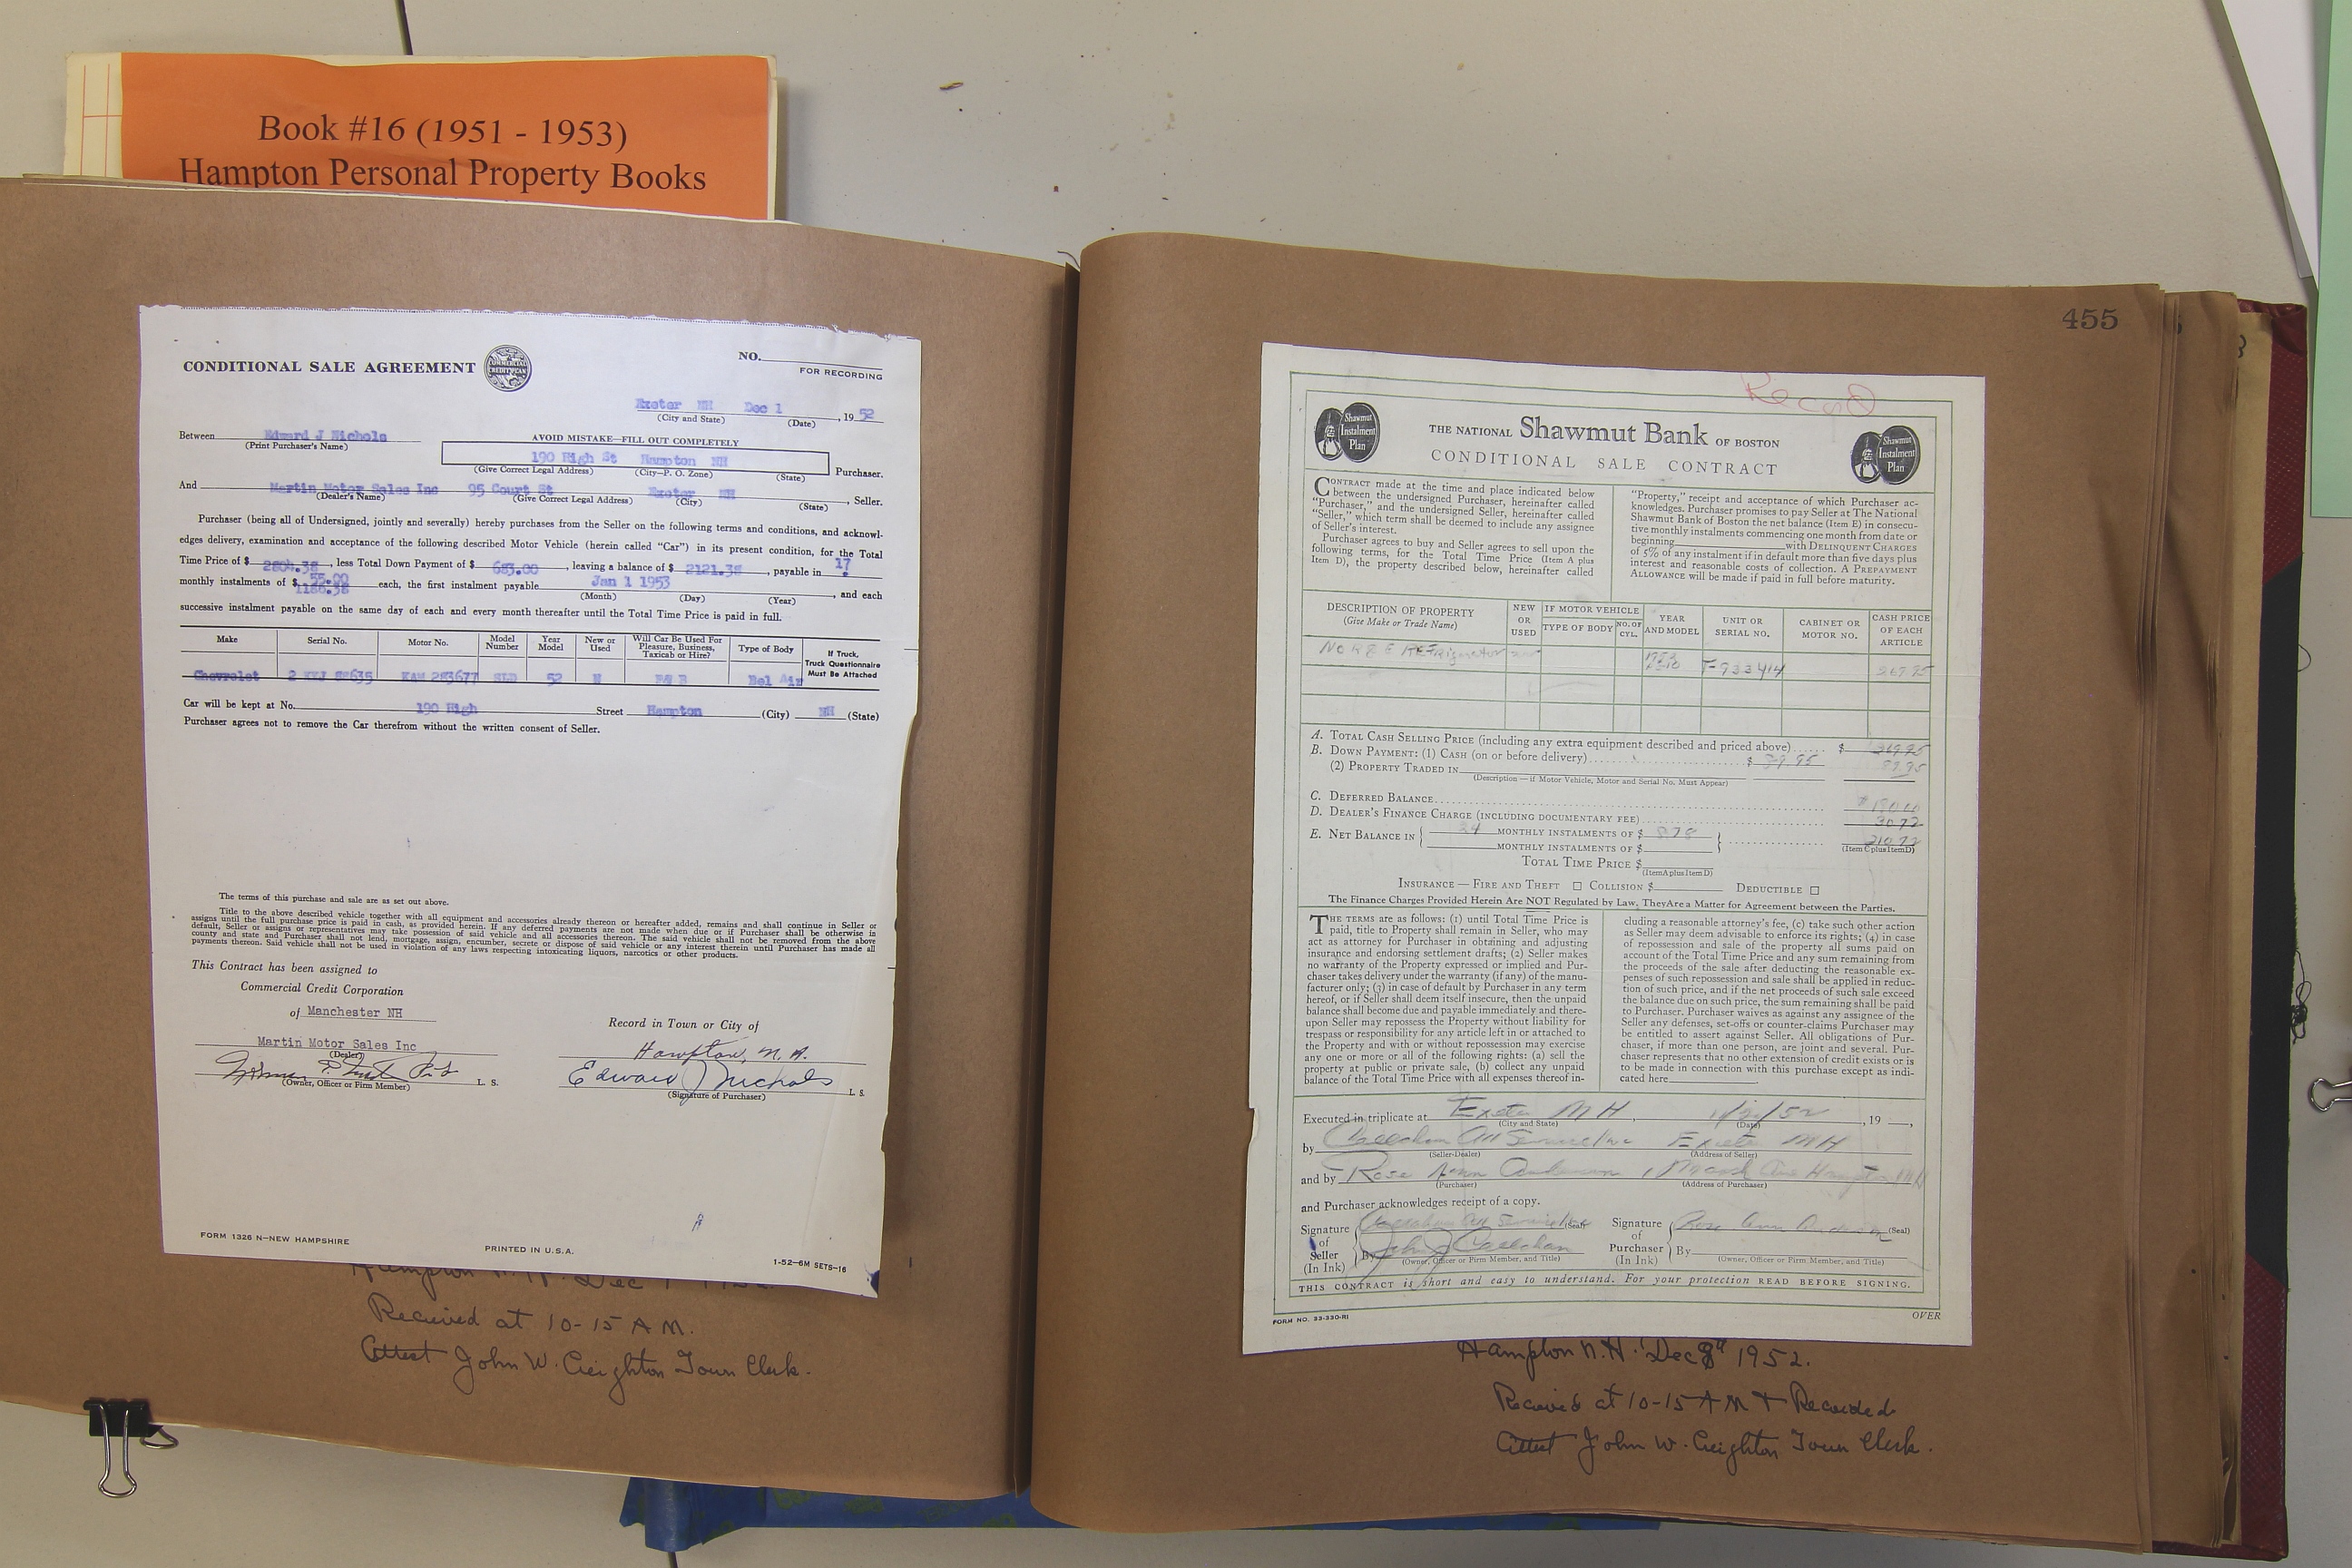 Book #16 (1951 - 1953)
Hampton Personal Property Books
CONDITIONAL SALE AGREEMENT
NO.
FOR RECORDING
Exeter NH Dec 1, 1952
(City and State) (Date)
Between Edward J Nichols
(Print Purchaser's Name)
AVOID MISTAKE—FILL OUT COMPLETELY
190 High St Hampton NH
(Give Correct Legal Address) (City—P. O. Zone) (State) Purchaser.
And Martin Motor Sales Inc 95 Court St Exeter NH, Seller.
(Dealer's Name) (Give Correct Legal Address) (City) (State)
Purchaser (being all of Undersigned, jointly and severally) hereby purchases from the Seller on the following terms and conditions, and acknowl-
edges delivery, examination and acceptance of the following described Motor Vehicle (herein called "Car") in its present condition, for the Total
Time Price of $ 2804.38, less Total Down Payment of $ 683.00, leaving a balance of $ 2121.38, payable in 17
monthly instalments of $ 55.00 each, the first instalment payable Jan 1 1953, and each
1186.38
(Month) (Day) (Year)
successive instalment payable on the same day of each and every month thereafter until the Total Time Price is paid in full.
Make Serial No. Motor No. Model Number Year Model New or Used Will Car Be Used For Pleasure, Business, Taxicab or Hire? Type of Body If Truck, Truck Questionnaire Must Be Attached
Chevrolet 52 N Bel Air
Car will be kept at No. 190 High Street Hampton (City) NH (State)
Purchaser agrees not to remove the Car therefrom without the written consent of Seller.
The terms of this purchase and sale are as set out above.
Title to the above described vehicle together with all equipment and accessories already thereon or hereafter added, remains and shall continue in Seller or
assigns until the full purchase price is paid in cash, as provided herein. If any deferred payments are not made when due or if Purchaser shall be otherwise in
default, Seller or assigns or representatives may take possession of said vehicle and all accessories thereon. The said vehicle shall not be removed from the above
county and state and Purchaser shall not lend, mortgage, assign, encumber, secrete or dispose of said vehicle or any interest therein until Purchaser has made all
payments thereon. Said vehicle shall not be used in violation of any laws respecting intoxicating liquors, narcotics or other products.
This Contract has been assigned to
Commercial Credit Corporation
of Manchester NH
Record in Town or City of
Hampton, N.H.
Martin Motor Sales Inc
(Dealer)
L. S.
(Owner, Officer or Firm Member)
Edward J Nichols L. S.
(Signature of Purchaser)
FORM 1326 N—NEW HAMPSHIRE
PRINTED IN U.S.A.
1-52—6M SETS—16
Hampton N.H. Dec
Received at 10-15 A M.
Attest John W. Creighton Town Clerk.
455
Record
Shawmut Instalment Plan
THE NATIONAL Shawmut Bank OF BOSTON
CONDITIONAL SALE CONTRACT
Shawmut Instalment Plan
CONTRACT made at the time and place indicated below
between the undersigned Purchaser, hereinafter called
"Purchaser," and the undersigned Seller, hereinafter called
"Seller," which term shall be deemed to include any assignee
of Seller's interest.
Purchaser agrees to buy and Seller agrees to sell upon the
following terms, for the Total Time Price (Item A plus
Item D), the property described below, hereinafter called
"Property," receipt and acceptance of which Purchaser ac-
knowledges. Purchaser promises to pay Seller at The National
Shawmut Bank of Boston the net balance (Item E) in consecu-
tive monthly instalments commencing one month from date or
beginning with DELINQUENT CHARGES
of 5% of any instalment if in default more than five days plus
interest and reasonable costs of collection. A PREPAYMENT
ALLOWANCE will be made if paid in full before maturity.
DESCRIPTION OF PROPERTY (Give Make or Trade Name) NEW OR USED IF MOTOR VEHICLE TYPE OF BODY NO. OF CYL. YEAR AND MODEL UNIT OR SERIAL NO. CABINET OR MOTOR NO. CASH PRICE OF EACH ARTICLE
NORGE REFrigerator 1952 T-933414
A. TOTAL CASH SELLING PRICE (including any extra equipment described and priced above) $
B. DOWN PAYMENT: (1) CASH (on or before delivery) $ 89.95 89.95
(2) PROPERTY TRADED IN
(Description — if Motor Vehicle, Motor and Serial No. Must Appear)
C. DEFERRED BALANCE 180.00
D. DEALER'S FINANCE CHARGE (INCLUDING DOCUMENTARY FEE) 30.72
E. NET BALANCE IN 24 MONTHLY INSTALMENTS OF $ 8.78 210.72
MONTHLY INSTALMENTS OF $ (Item C plus Item D)
TOTAL TIME PRICE $
(Item A plus Item D)
INSURANCE — FIRE AND THEFT COLLISION $ DEDUCTIBLE
The Finance Charges Provided Herein Are NOT Regulated by Law. They Are a Matter for Agreement between the Parties.
THE TERMS are as follows: (1) until Total Time Price is
paid, title to Property shall remain in Seller, who may
act as attorney for Purchaser in obtaining and adjusting
insurance and endorsing settlement drafts; (2) Seller makes
no warranty of the Property expressed or implied and Pur-
chaser takes delivery under the warranty (if any) of the manu-
facturer only; (3) in case of default by Purchaser in any term
hereof, or if Seller shall deem itself insecure, then the unpaid
balance shall become due and payable immediately and there-
upon Seller may repossess the Property without liability for
trespass or responsibility for any article left in or attached to
the Property and with or without repossession may exercise
any one or more or all of the following rights: (a) sell the
property at public or private sale, (b) collect any unpaid
balance of the Total Time Price with all expenses thereof in-
cluding a reasonable attorney's fee, (c) take such other action
as Seller may deem advisable to enforce its rights; (4) in case
of repossession and sale of the property all sums paid on
account of the Total Time Price and any sum remaining from
the proceeds of the sale after deducting the reasonable ex-
penses of such repossession and sale shall be applied in reduc-
tion of such price, and if the net proceeds of such sale exceed
the balance due on such price, the sum remaining shall be paid
to Purchaser. Purchaser waives as against any assignee of the
Seller any defenses, set-offs or counter-claims Purchaser may
be entitled to assert against Seller. All obligations of Pur-
chaser, if more than one person, are joint and several. Pur-
chaser represents that no other extension of credit exists or is
to be made in connection with this purchase except as indi-
cated here
Executed in triplicate at Exeter NH, /52, 19
(City and State) (Date)
by Exeter NH
(Seller-Dealer) (Address of Seller)
and by Rose Ann Anderson Hampton NH
(Purchaser) (Address of Purchaser)
and Purchaser acknowledges receipt of a copy.
Signature of Seller (In Ink) (Seal)
By John J Callahan
(Owner, Officer or Firm Member, and Title)
Signature of Purchaser (In Ink) Rose Ann Anderson (Seal)
By
(Owner, Officer or Firm Member, and Title)
THIS CONTRACT is short and easy to understand. For your protection READ BEFORE SIGNING.
FORM NO. 33-330-RI
OVER
Hampton N.H. Dec 8" 1952.
Received at 10-15 A M + Recorded
Attest John W. Creighton Town Clerk.